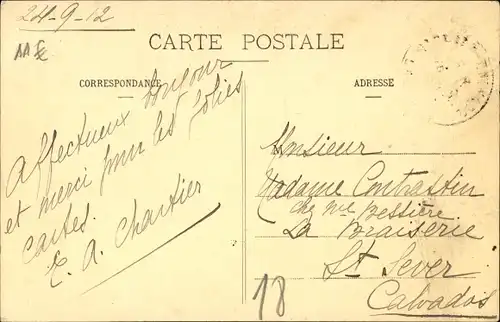 24-9-12
CARTE POSTALE
CORRESPONDANCE
ADRESSE
Affectueux bonjour
et merci pour les jolies
cartes.
E. A. Chartier
Monsieur
Madame Contrastin
chez Mme Bessière
La Braiserie
St Sever
Calvados
18